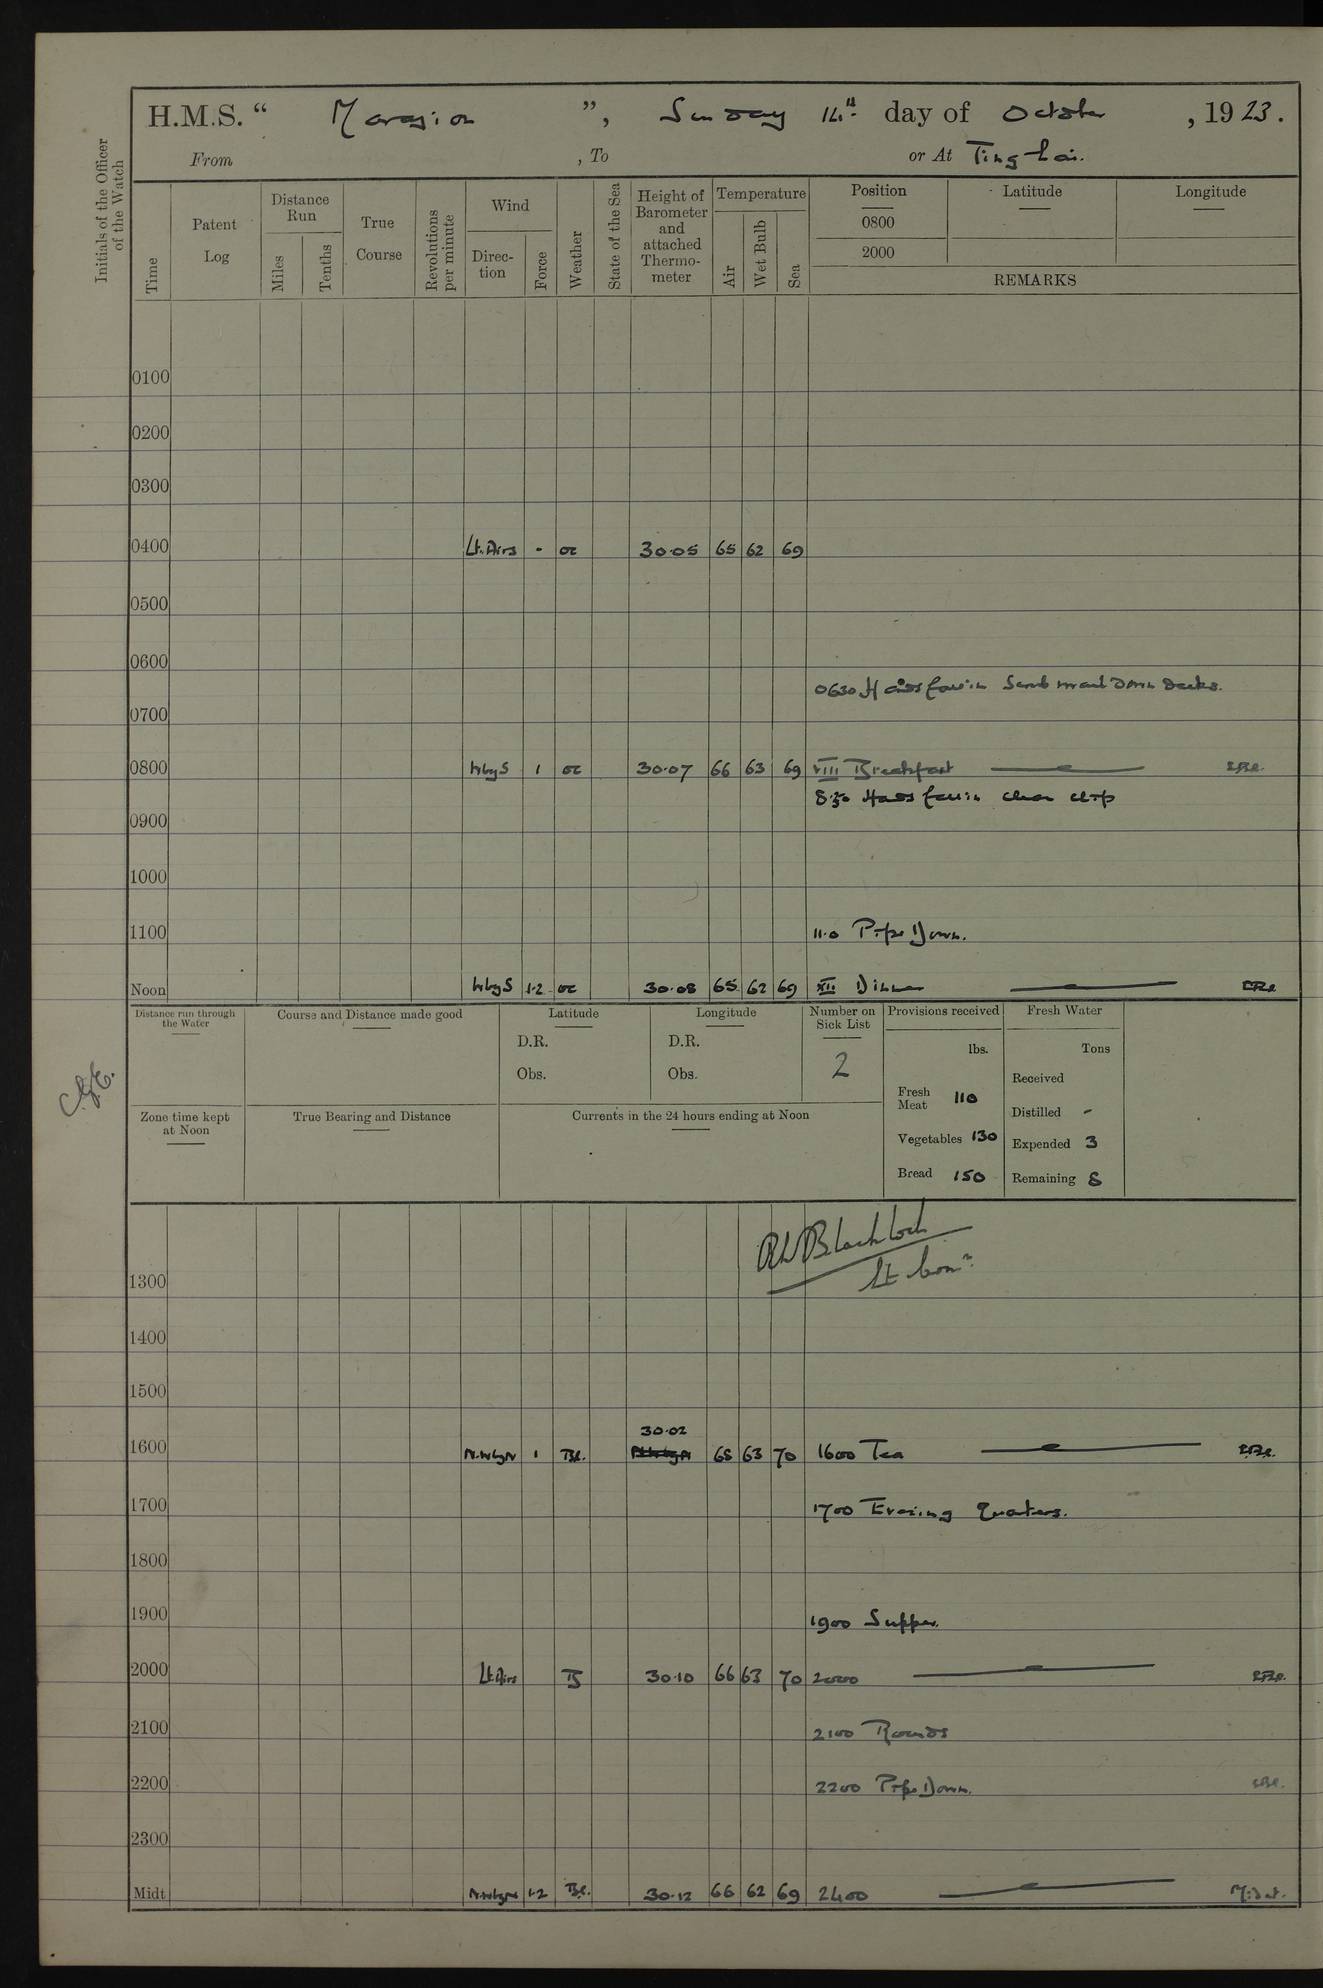 H.M.S. “ Marazion ”, Sunday 14th day of October , 1923.
From , To or At Ting-hai.
Initials of the Officer of the Watch
Time
Patent Log
Distance Run
Miles
Tenths
True Course
Revolutions per minute
Wind
Direc-tion
Force
Weather
State of the Sea
Height of Barometer and attached Thermo-meter
Temperature
Air
Wet Bulb
Sea
Position Latitude Longitude
0800
2000
REMARKS
0100
0200
0300
0400 Lt. Airs - oc 30.05 65 62 69
0500
0600
0630 Hands fall in Scrub and down decks.
0700
0800 W by S 1 oc 30.07 66 63 69 VIII Breakfast
8.50 Hands fall in clean ship
0900
1000
1100 11.0 Pipe Down.
Noon W by S 1-2 oc 30.08 65 62 69 XII Dinner
Distance run through the Water
Course and Distance made good
Latitude
D.R.
Obs.
Longitude
D.R.
Obs.
Number on Sick List
2
Provisions received
lbs.
Fresh Meat 110
Vegetables 130
Bread 150
Fresh Water
Tons
Received
Distilled -
Expended 3
Remaining 8
Zone time kept at Noon
True Bearing and Distance
Currents in the 24 hours ending at Noon
Lt Comr.
1300
1400
1500
30.02
1600 N.W by N 1 Bc. 65 63 70 1600 Tea
1700 1700 Evening Quarters.
1800
1900 1900 Supper.
2000 Lt. Airs B 30.10 66 63 70 2000
2100 2100 Rounds
2200 2200 Pipe Down.
2300
Midt N.W by N 1-2 Bc. 30.12 66 62 69 2400